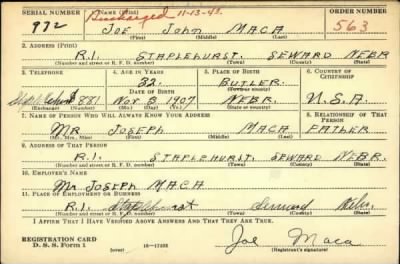 SERIAL NUMBER 1. NAME (Print) ORDER NUMBER
Discharged 11-13-45.
972 JOE John MACA 563
(First) (Middle) (Last)
2. ADDRESS (Print)
R.1. STAPLEHURST. SEWARD NEBR
(Number and street or R. F. D. number) (Town) (County) (State)
3. TELEPHONE 4. AGE IN YEARS 5. PLACE OF BIRTH 6. COUNTRY OF CITIZENSHIP
32. BUTLER.
DATE OF BIRTH (Town or county)
881 Nov 3 1907 NEBR. U.S.A.
(Exchange) (Number) (Mo.) (Day) (Yr.) (State or country)
7. NAME OF PERSON WHO WILL ALWAYS KNOW YOUR ADDRESS 8. RELATIONSHIP OF THAT PERSON
MR JOSEPH MACA FATHER
(Mr., Mrs., Miss) (First) (Middle) (Last)
9. ADDRESS OF THAT PERSON
R.1. STAPLEHURST. SEWARD NEBR.
(Number and street or R. F. D. number) (Town) (County) (State)
10. EMPLOYER'S NAME
Mr JOSEPH MACA
11. PLACE OF EMPLOYMENT OR BUSINESS
R.1. Staplehurst Seward Nebr.
(Number and street or R. F. D. number) (Town) (County) (State)
I AFFIRM THAT I HAVE VERIFIED ABOVE ANSWERS AND THAT THEY ARE TRUE.
REGISTRATION CARD
D. S. S. Form 1 (over) 16-17105 Joe Maca
(Registrant's signature)